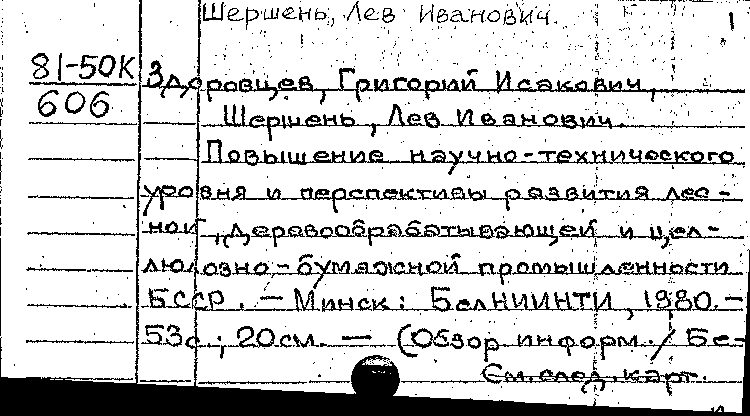 Шершень, Лев Иванович. 1
81-50К Здоровцев, Григорий Исакович,
606 Шершень, Лев Иванович.
Повышение научно-технического
уровня и перспективы развития лес-
ной, деревообрабатывающей и цел-
люлозно-бумажной промышленности
БССР. — Минск: БелНИИНТИ, 1980.—
53с.; 20см. — (Обзор. информ. / Бе-
См. след. карт.